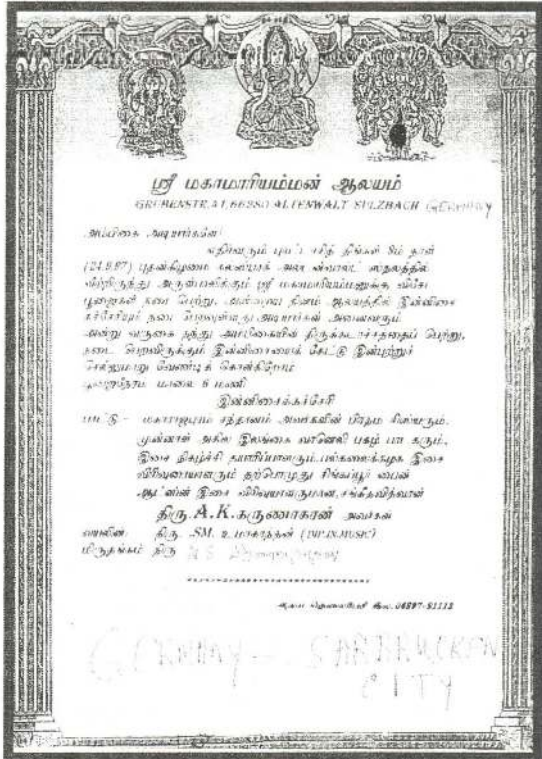 ஸ்ரீ மகாமாரியம்மன் ஆலயம்
GRUBENSTR.41, 66280 ALTENWALT SULZBACH GERMANY
அம்பிகை அடியார்களே!
எதிர்வரும் புரட்டாசித் திங்கள் 8ம் நாள்
(24.9.97) புதன்கிழமை அன்று
வீற்றிருந்து அருள்பாலிக்கும் ஸ்ரீ மகாமாரியம்மனுக்கு விசேட
பூஜைகள் நடை பெற்று, தினம் ஆலயத்தில் இன்னிசை
கச்சேரியும் நடை பெறவுள்ளது அடியார்கள் அனைவரும்
அன்று வருகை தந்து அம்பிகையின் திருக்கடாட்சத்தைப் பெற்று,
நடை பெறவிருக்கும் இன்னிசையைக் கேட்டு இன்புற்றுச்
செல்லுமாறு வேண்டிக் கொள்கிறோம்
மாலை 6 மணி
இன்னிசைக்கச்சேரி
பாட்டு :- மகாராஜபுரம் சந்தானம் அவர்களின் பிரதம சிஷ்யரும்,
முன்னாள் அகில இலங்கை வானொலி புகழ் பாடகரும்,
இசை நிகழ்ச்சி தயாரிப்பாளரும், பல்கலைக்கழக இசை
விரிவுரையாளரும் தற்பொழுது சிங்கப்பூர் பைன்
ஆட்ஸின் இசை விரிவுரையாளருமான சங்கீதவித்வான்
திரு.A.K.கருணாகரன் அவர்கள்
வயலின்: திரு. SM. (DIP.IN.MUSIC)
மிருதங்கம் திரு
ஆலய தொலைபேசி இல. 06897-81112
GERMANY - SAARBRUCKEN
CITY